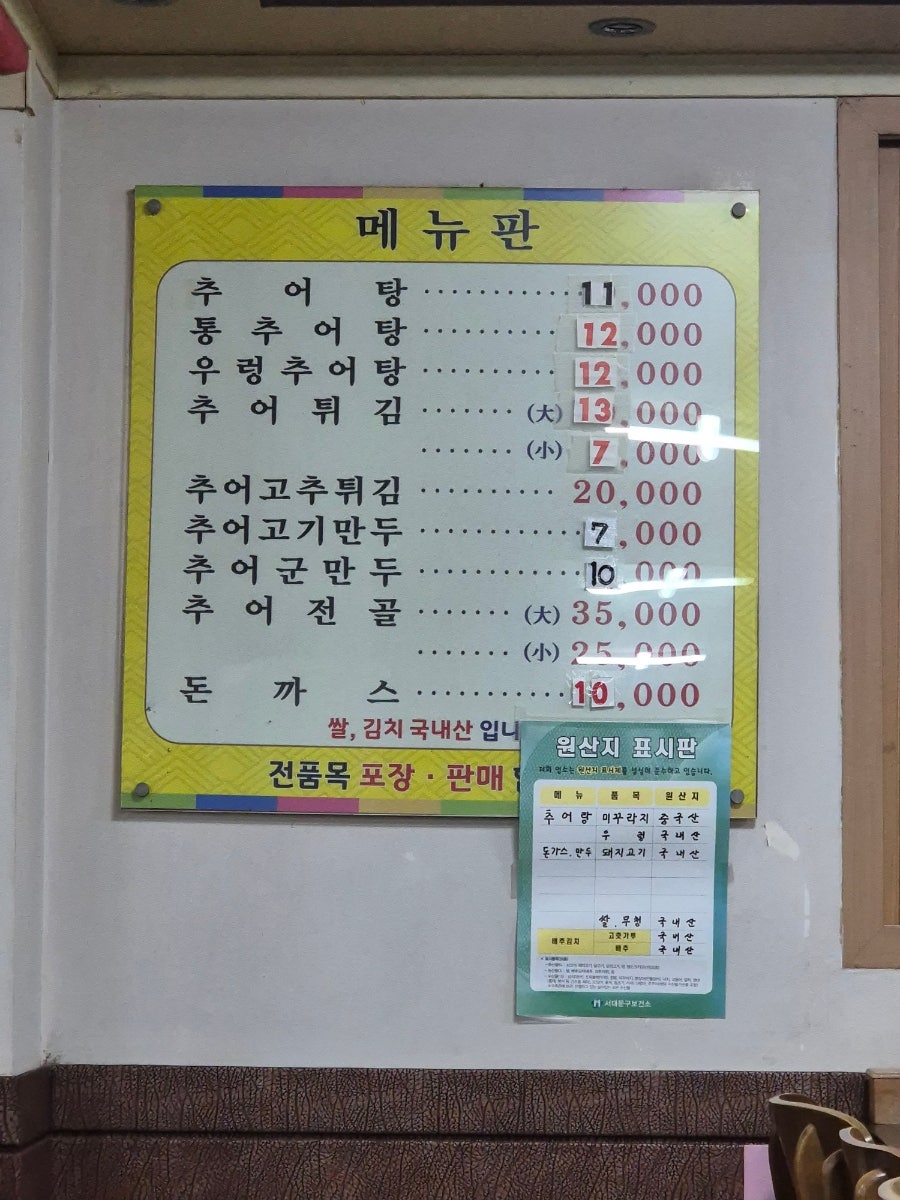 메뉴판
추어탕 ·········· 11,000
통추어탕 ·········· 12,000
우렁추어탕 ·········· 12,000
추어튀김 ······· (大) 13,000
······· (小) 7,000
추어고추튀김 ·········· 20,000
추어고기만두 ·········· 7,000
추어군만두 ·········· 10,000
추어전골 ······· (大) 35,000
······· (小) 25,000
돈까스 ·········· 10,000
쌀, 김치 국내산 입니
전품목 포장·판매
원산지 표시판
저희 업소는 원산지 표시제를 성실히 준수하고 있습니다.
메뉴 품목 원산지
추어탕 미꾸라지 중국산
우렁 국내산
돈가스.만두 돼지고기 국내산
쌀.무청 국내산
배추김치 고춧가루 국내산
배추 국내산
서대문구보건소